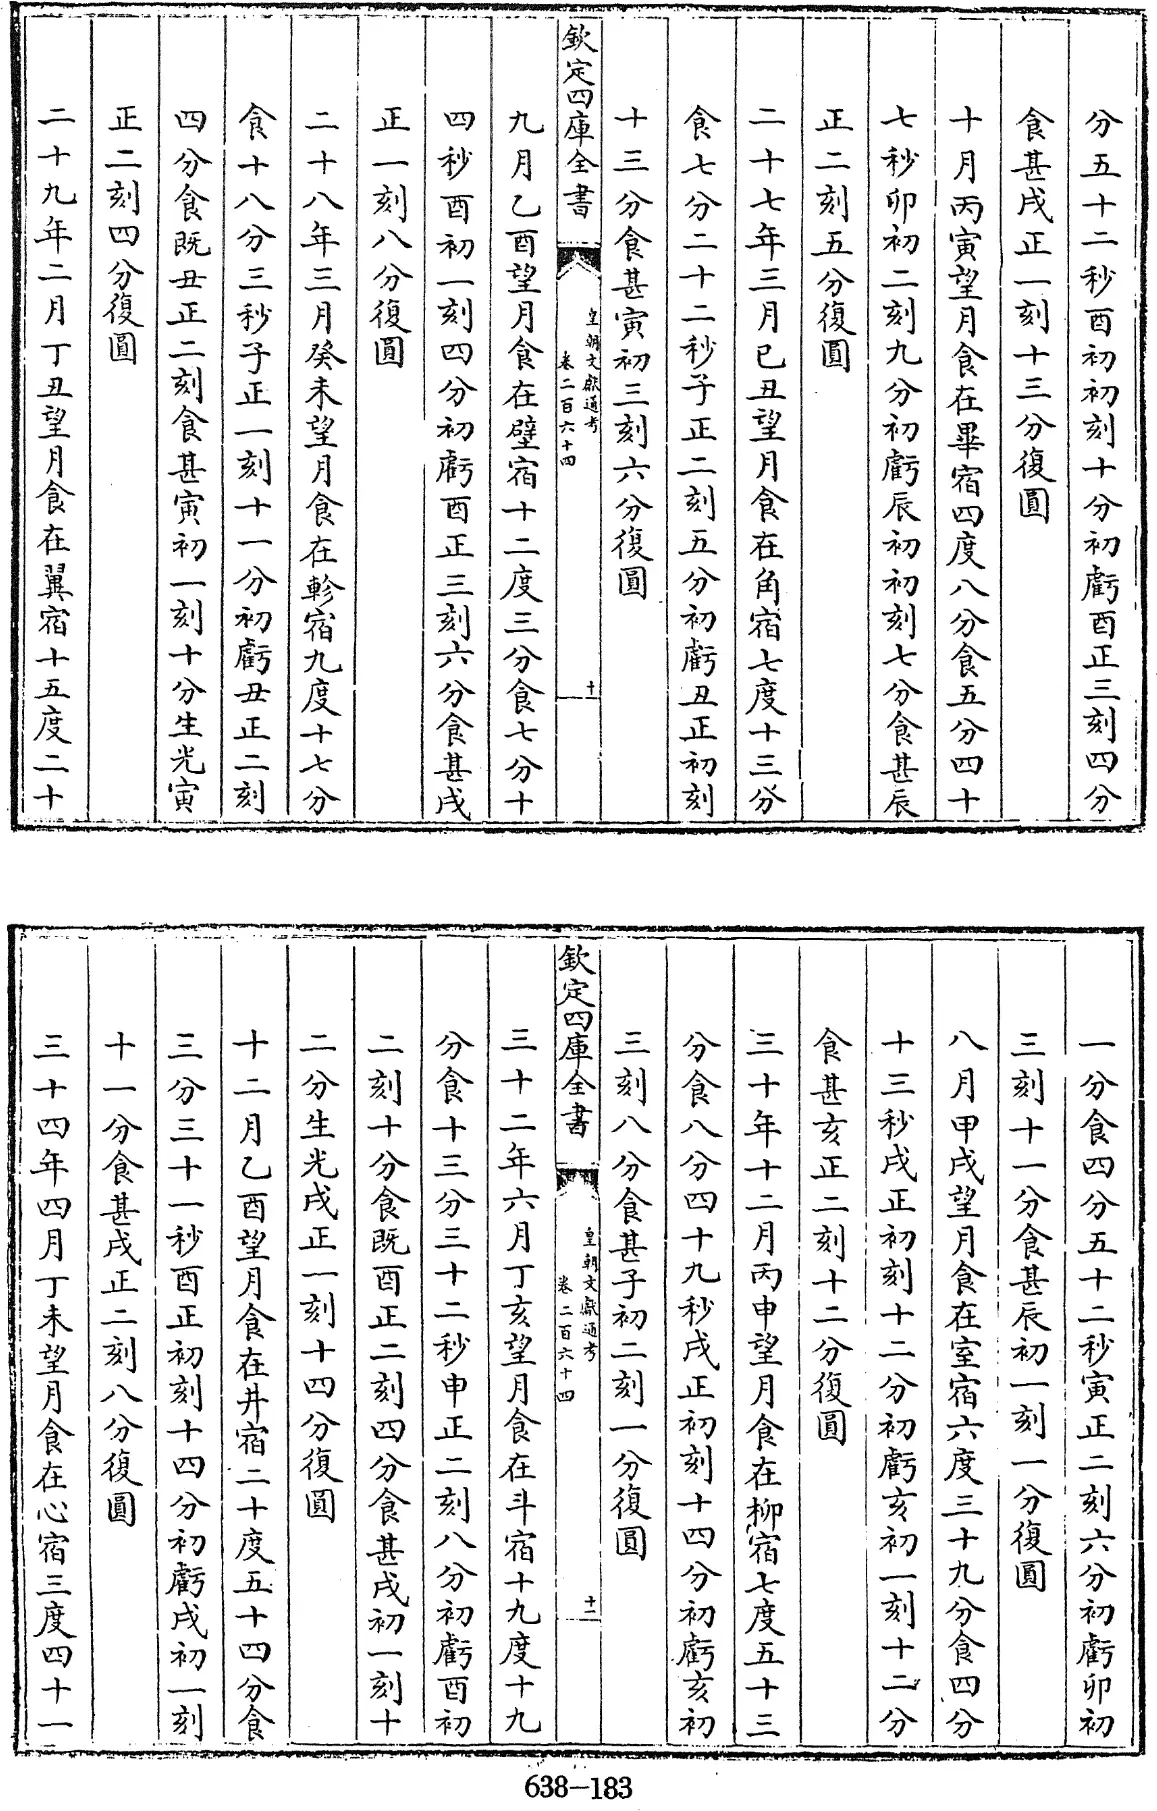 分五十二秒酉初初刻十分初虧酉正三刻四分
食甚戌正一刻十三分復圓
十月丙寅望月食在畢宿四度八分食五分四十
七秒卯初二刻九分初虧辰初初刻七分食甚辰
正二刻五分復圓
二十七年三月己丑望月食在角宿七度十三分
食七分二十二秒子正二刻五分初虧丑正初刻
十三分食甚寅初三刻六分復圓
欽定四庫全書
皇朝文獻通考
卷二百六十四
十一
九月乙酉望月食在壁宿十二度三分食七分十
四秒酉初一刻四分初虧酉正三刻六分食甚戌
正一刻八分復圓
二十八年三月癸未望月食在軫宿九度十七分
食十八分三秒子正一刻十一分初虧丑正二刻
四分食既丑正二刻食甚寅初一刻十分生光寅
正二刻四分復圓
二十九年二月丁丑望月食在翼宿十五度二十
一分食四分五十二秒寅正二刻六分初虧卯初
三刻十一分食甚辰初一刻一分復圓
八月甲戌望月食在室宿六度三十九分食四分
十三秒戌正初刻十二分初虧亥初一刻十二分
食甚亥正二刻十二分復圓
三十年十二月丙申望月食在柳宿七度五十三
分食八分四十九秒戌正初刻十四分初虧亥初
三刻八分食甚子初二刻一分復圓
欽定四庫全書
皇朝文獻通考
卷二百六十四
十二
三十二年六月丁亥望月食在斗宿十九度十九
分食十三分三十二秒申正二刻八分初虧酉初
二刻十分食既酉正二刻四分食甚戌初一刻十
二分生光戌正一刻十四分復圓
十二月乙酉望月食在井宿二十度五十四分食
三分三十一秒酉正初刻十四分初虧戌初一刻
十一分食甚戌正二刻八分復圓
三十四年四月丁未望月食在心宿三度四十一
638-183